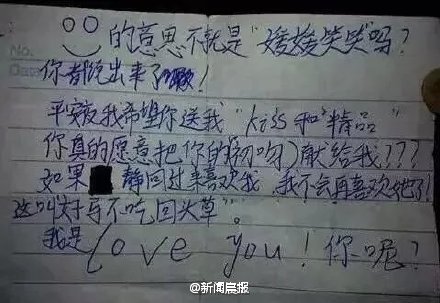 的意思不就是"嫒嫒笑笑"吗?
你都说出来了
平安夜我希望你送我"kiss和"精品"
你真的愿意把你的(初吻)献给我???
如果 静回过来喜欢我,我不会再喜欢她了!
这叫"好马不吃回头草"。
我是Love you!你呢?
No.
Date
@新闻晨报